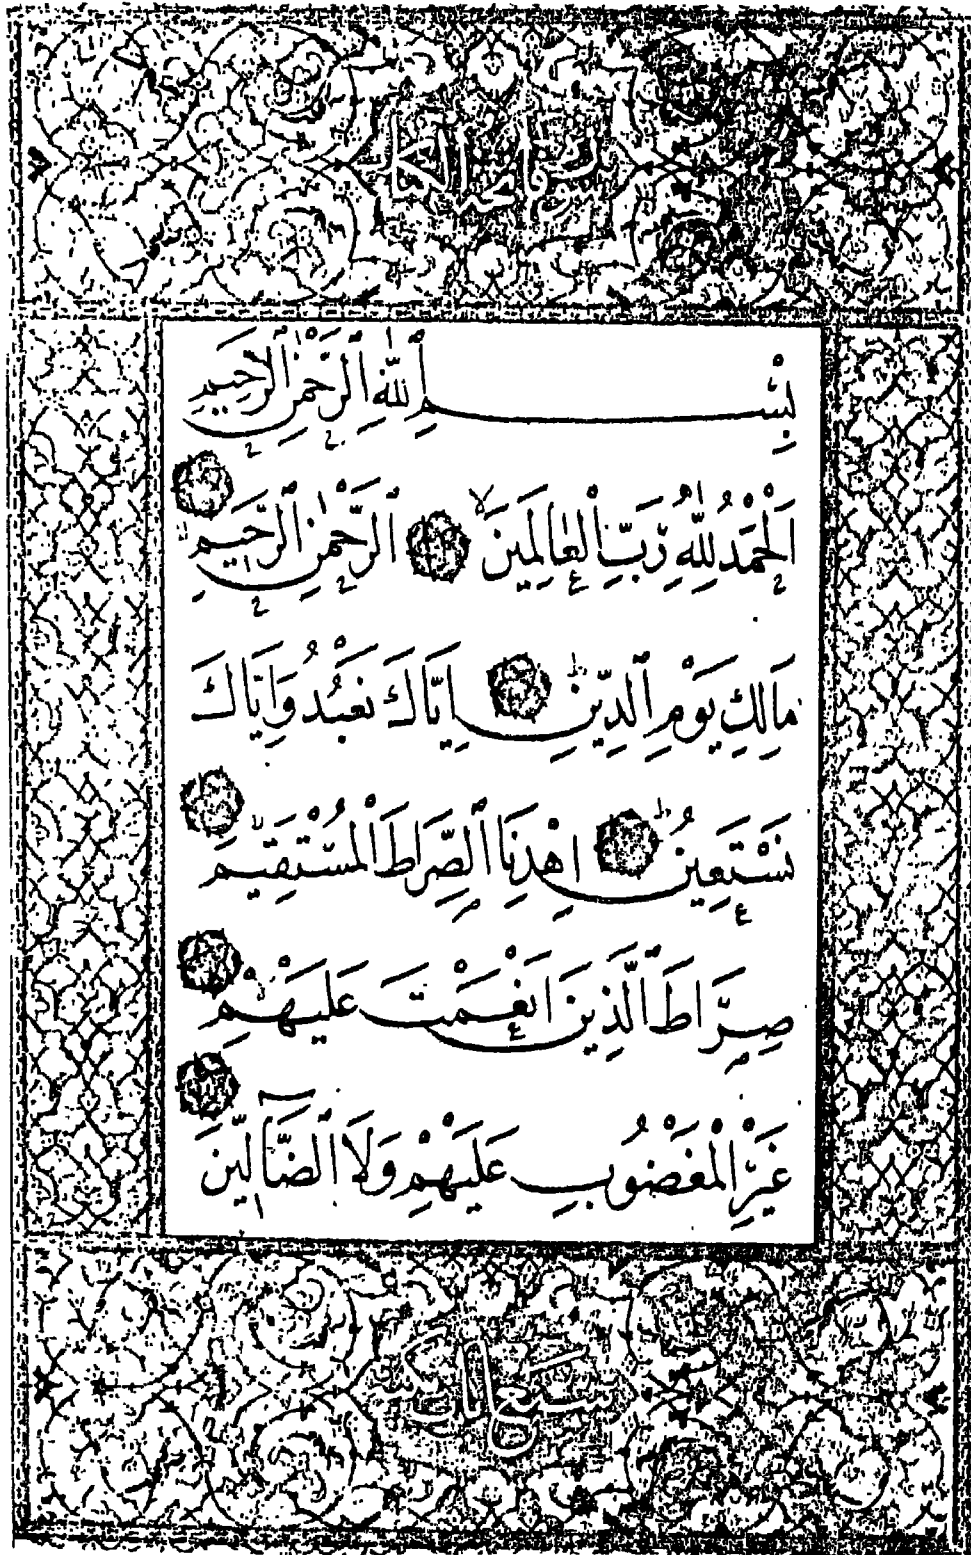 سورة فاتحة الكتاب
بِسْمِ ٱللّٰهِ ٱلرَّحْمٰنِ ٱلرَّحِيمِ
اَلْحَمْدُ لِلّٰهِ رَبِّ ٱلْعَالَمِينَ ٱلرَّحْمٰنِ ٱلرَّحِيمِ
مَالِكِ يَوْمِ ٱلدِّينِ اِيَّاكَ نَعْبُدُ وَاِيَّاكَ
نَسْتَعِينُ اِهْدِنَا ٱلصِّرَاطَ الْمُسْتَقِيمَ
صِرَاطَ ٱلَّذِينَ اَنْعَمْتَ عَلَيْهِمْ
غَيْرِ الْمَغْضُوبِ عَلَيْهِمْ وَلَا ٱلضَّآلِّينَ
سبع آيات